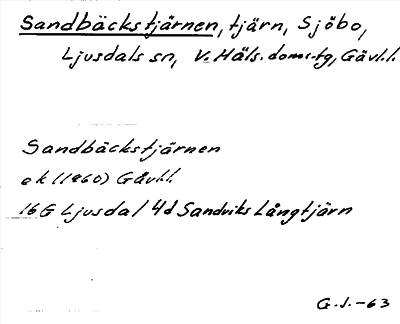 Sandbäckstjärnen, tjärn, Sjöbo,
Ljusdals sn, V. Häls. doms-tg, Gävl.l.
Sandbäckstjärnen
ek (1960) Gävl.l.
16G Ljusdal 4d Sandviks Långtjärn
G.J.-63